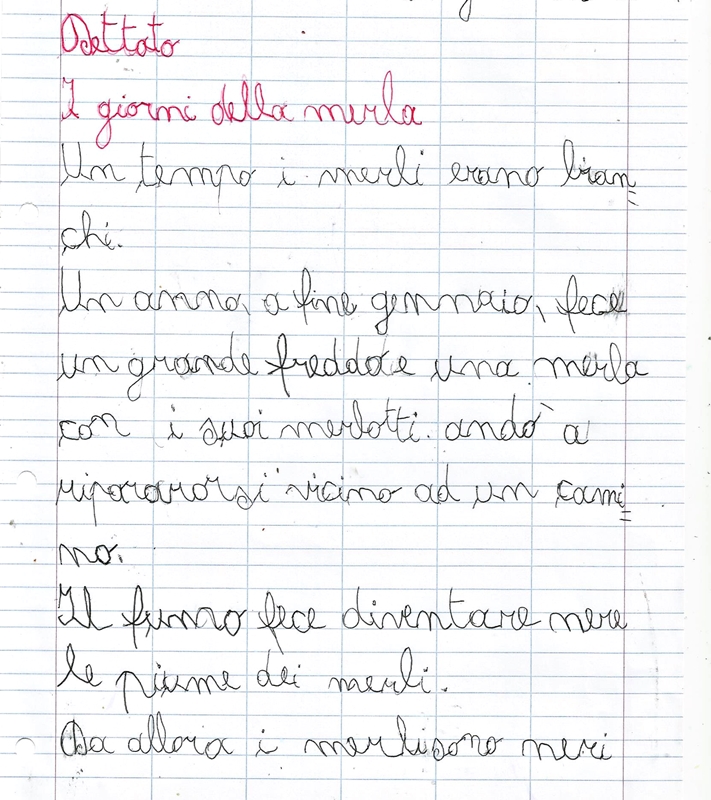 Dettato
I giorni della merla
Un tempo i merli erano bian=
chi.
Un anno, a fine gennaio, fece
un grande freddo e una merla
con i suoi merlotti andò a
ripararsi vicino ad un cami=
no.
Il fumo fece diventare nere
le piume dei merli.
Da allora i merli sono neri